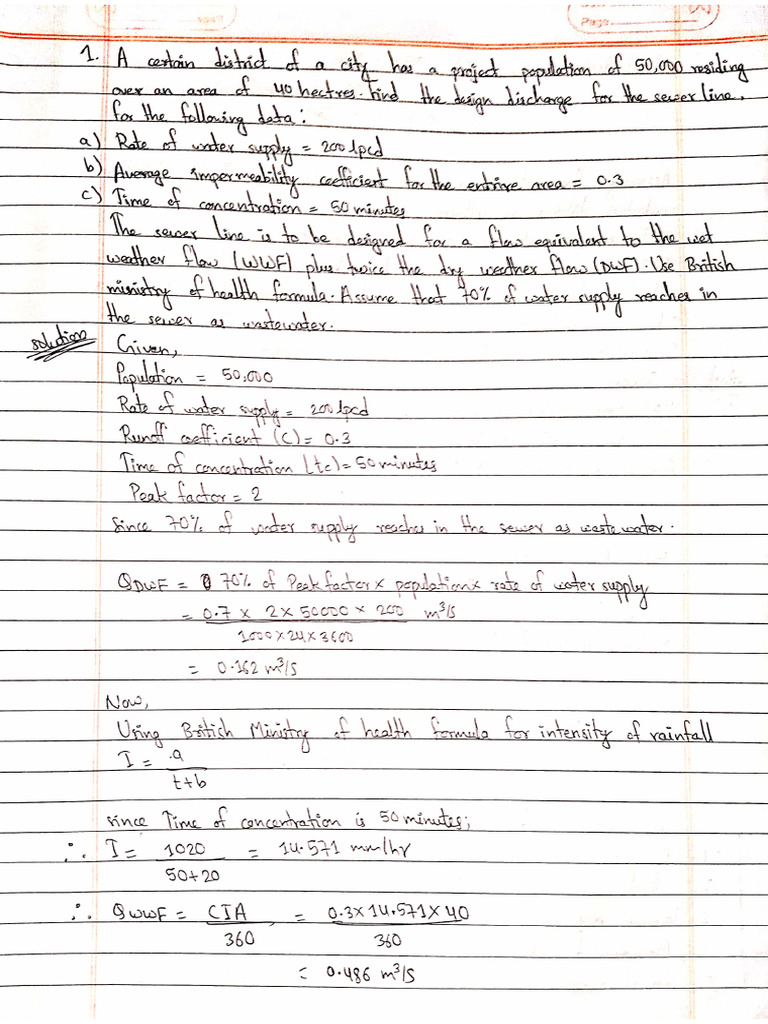 Page
1. A certain district of a city has a project population of 50,000 residing
over an area of 40 hectres. Find the design discharge for the sewer line,
for the following data:
a) Rate of water supply = 200 lpcd
b) Average impermeability coefficient for the entrire area = 0.3
c) Time of concentration = 50 minutes
The sewer line is to be designed for a flow equivalent to the wet
weather flow (WWF) plus twice the dry weather flow (DWF). Use British
ministry of health formula. Assume that 70% of water supply reaches in
the sewer as wastewater.
solution
Given,
Population = 50,000
Rate of water supply = 200 lpcd
Runoff coefficient (C) = 0.3
Time of concentration (tc) = 50 minutes
Peak factor = 2
Since 70% of water supply reaches in the sewer as waste water.
QDWF = 70% of Peak factor x population x rate of water supply
= 0.7 x 2 x 50000 x 200 m³/s
1000 x 24 x 3600
= 0.162 m³/s
Now,
Using British Ministry of health formula for intensity of rainfall
I = a
t+b
since Time of concentration is 50 minutes;
∴ I = 1020 = 14.571 mm/hr
50+20
∴ QWWF = CIA = 0.3 x 14.571 x 40
360 360
= 0.486 m³/s